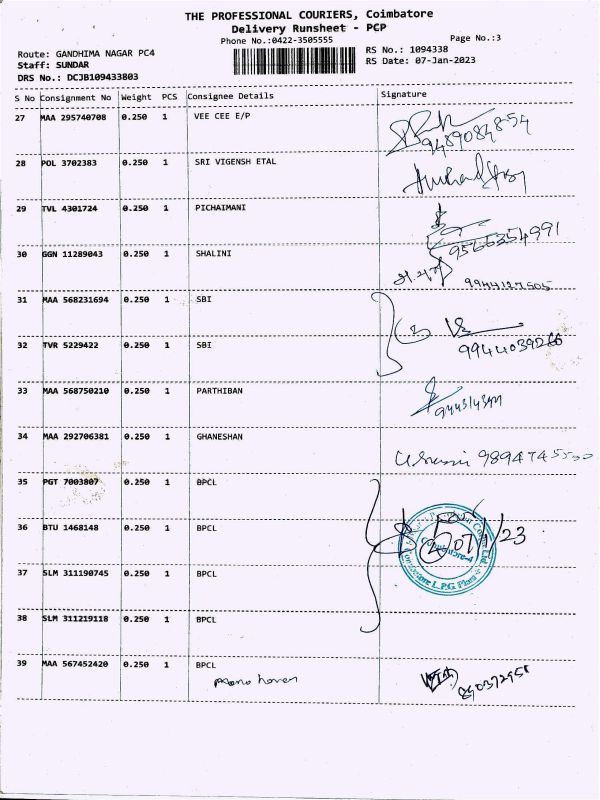 THE PROFESSIONAL COURIERS, Coimbatore
Delivery Runsheet - PCP
Phone No.:0422-3505555
Page No.:3
Route: GANDHIMA NAGAR PC4
RS No.: 1094338
Staff: SUNDAR
RS Date: 07-Jan-2023
DRS No.: DCJB109433803
S No Consignment No Weight PCS Consignee Details Signature
27 MAA 295740708 0.250 1 VEE CEE E/P
9489084854
28 POL 3702383 0.250 1 SRI VIGENSH ETAL
29 TVL 4301724 0.250 1 PICHAIMANI
9566354991
30 GGN 11289043 0.250 1 SHALINI
9944127505
31 MAA 568231694 0.250 1 SBI
32 TVR 5229422 0.250 1 SBI
9944039266
33 MAA 568750210 0.250 1 PARTHIBAN
34 MAA 292706381 0.250 1 GHANESHAN
9894745550
35 PGT 7003807 0.250 1 BPCL
36 BTU 1468148 0.250 1 BPCL
07/1/23
37 SLM 311190745 0.250 1 BPCL
38 SLM 311219118 0.250 1 BPCL
39 MAA 567452420 0.250 1 BPCL